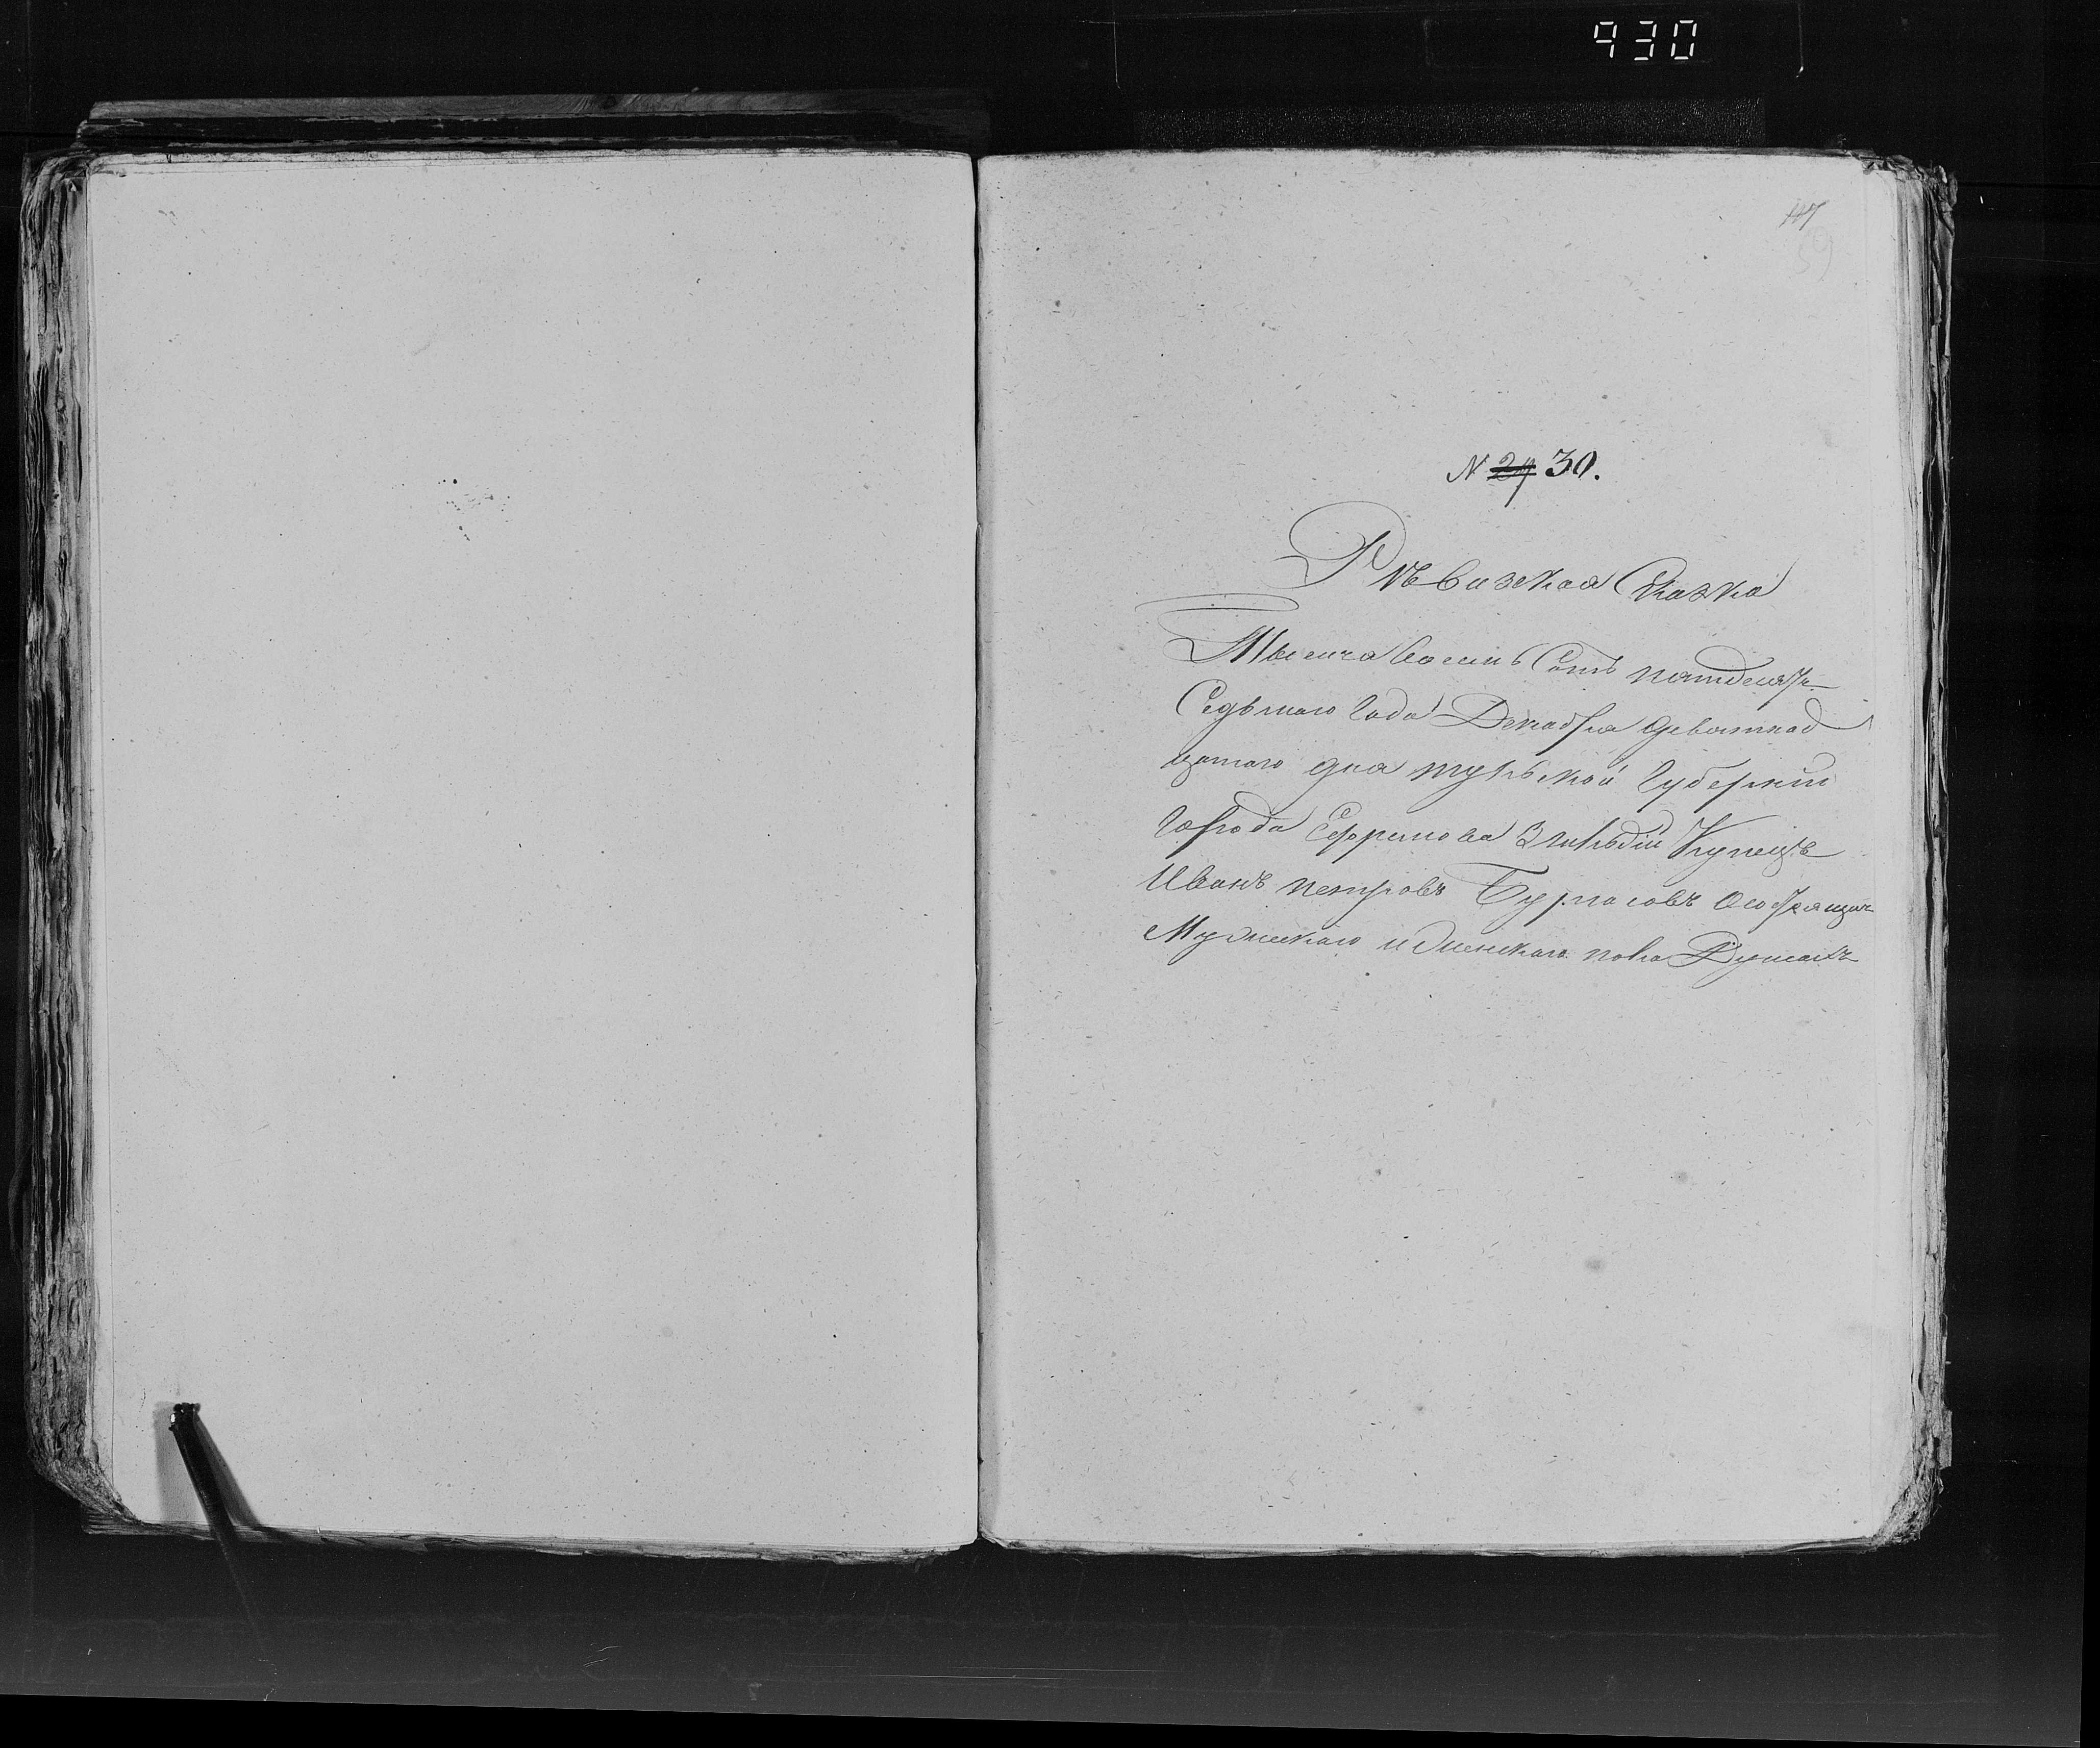 930
117
59
N 29 30.
Рѣвизская Сказка
Тысеча восемь Сотъ пятдесятъ
Седьмаго Года Декабря девятнад
цатаго дня тульской Губернии
Города Ефремова 3 гильдіи Купецъ
Иванъ петровъ Бурласовъ
Мужескаго и женскаго пола Душахъ